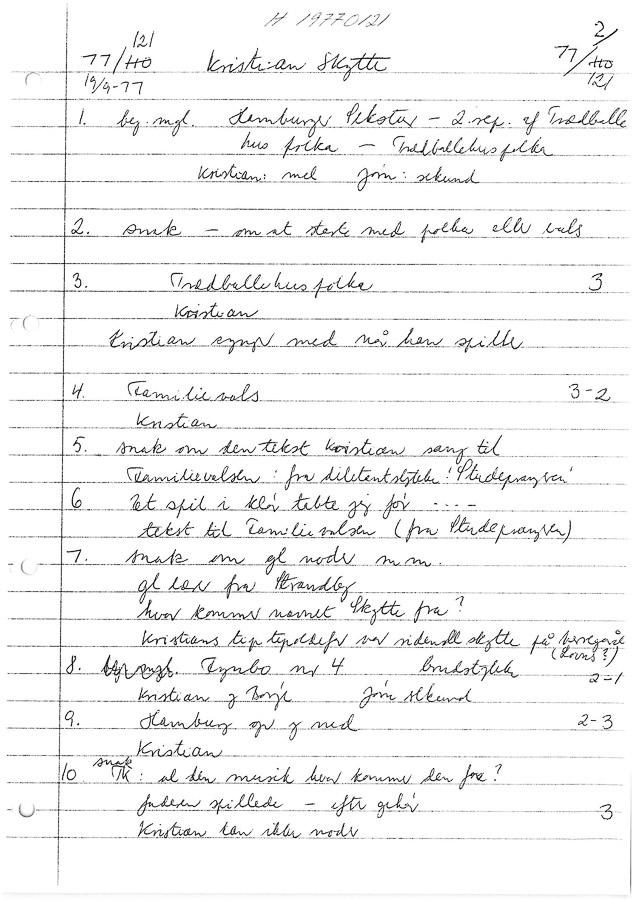 H 19770121
121 2/
77/HO Kristian Skytte 77/HO
19/9-77 121
1. beg. mgl. Hamburger Pikstur – 2. rep. af Trædballe
hus polka – Trædballehuspolka
Kristian: mel Jørn: sekund
2. snak – om at starte med polka eller vals
3. Trædballehuspolka 3
Kristian
Kristian synger med når han spiller
4. Familievals 3-2
Kristian
5. snak om den tekst Kristian sang til
Familievalsen: fra diletantstykket "Studeprangeren"
6 Et spil i klør tabte jeg før ----
tekst til Familievalsen (fra Studeprangeren)
7. snak om gl noder m.m.
gl lærer fra Strandby
hvor kommer navnet Skytte fra?
Kristians tip tipoldefar var ridende skytte på
(Lovns?)
8. beg. mgl. Fynbo nr 4 brudstykke 2-1
Kristian og Børge Jørn sekund
9. Hamburg op og ned 2-3
Kristian
snak
10 TK: al den musik hvor kommer den fra?
faderen spillede – efter gehør 3
Kristian kan ikke noder